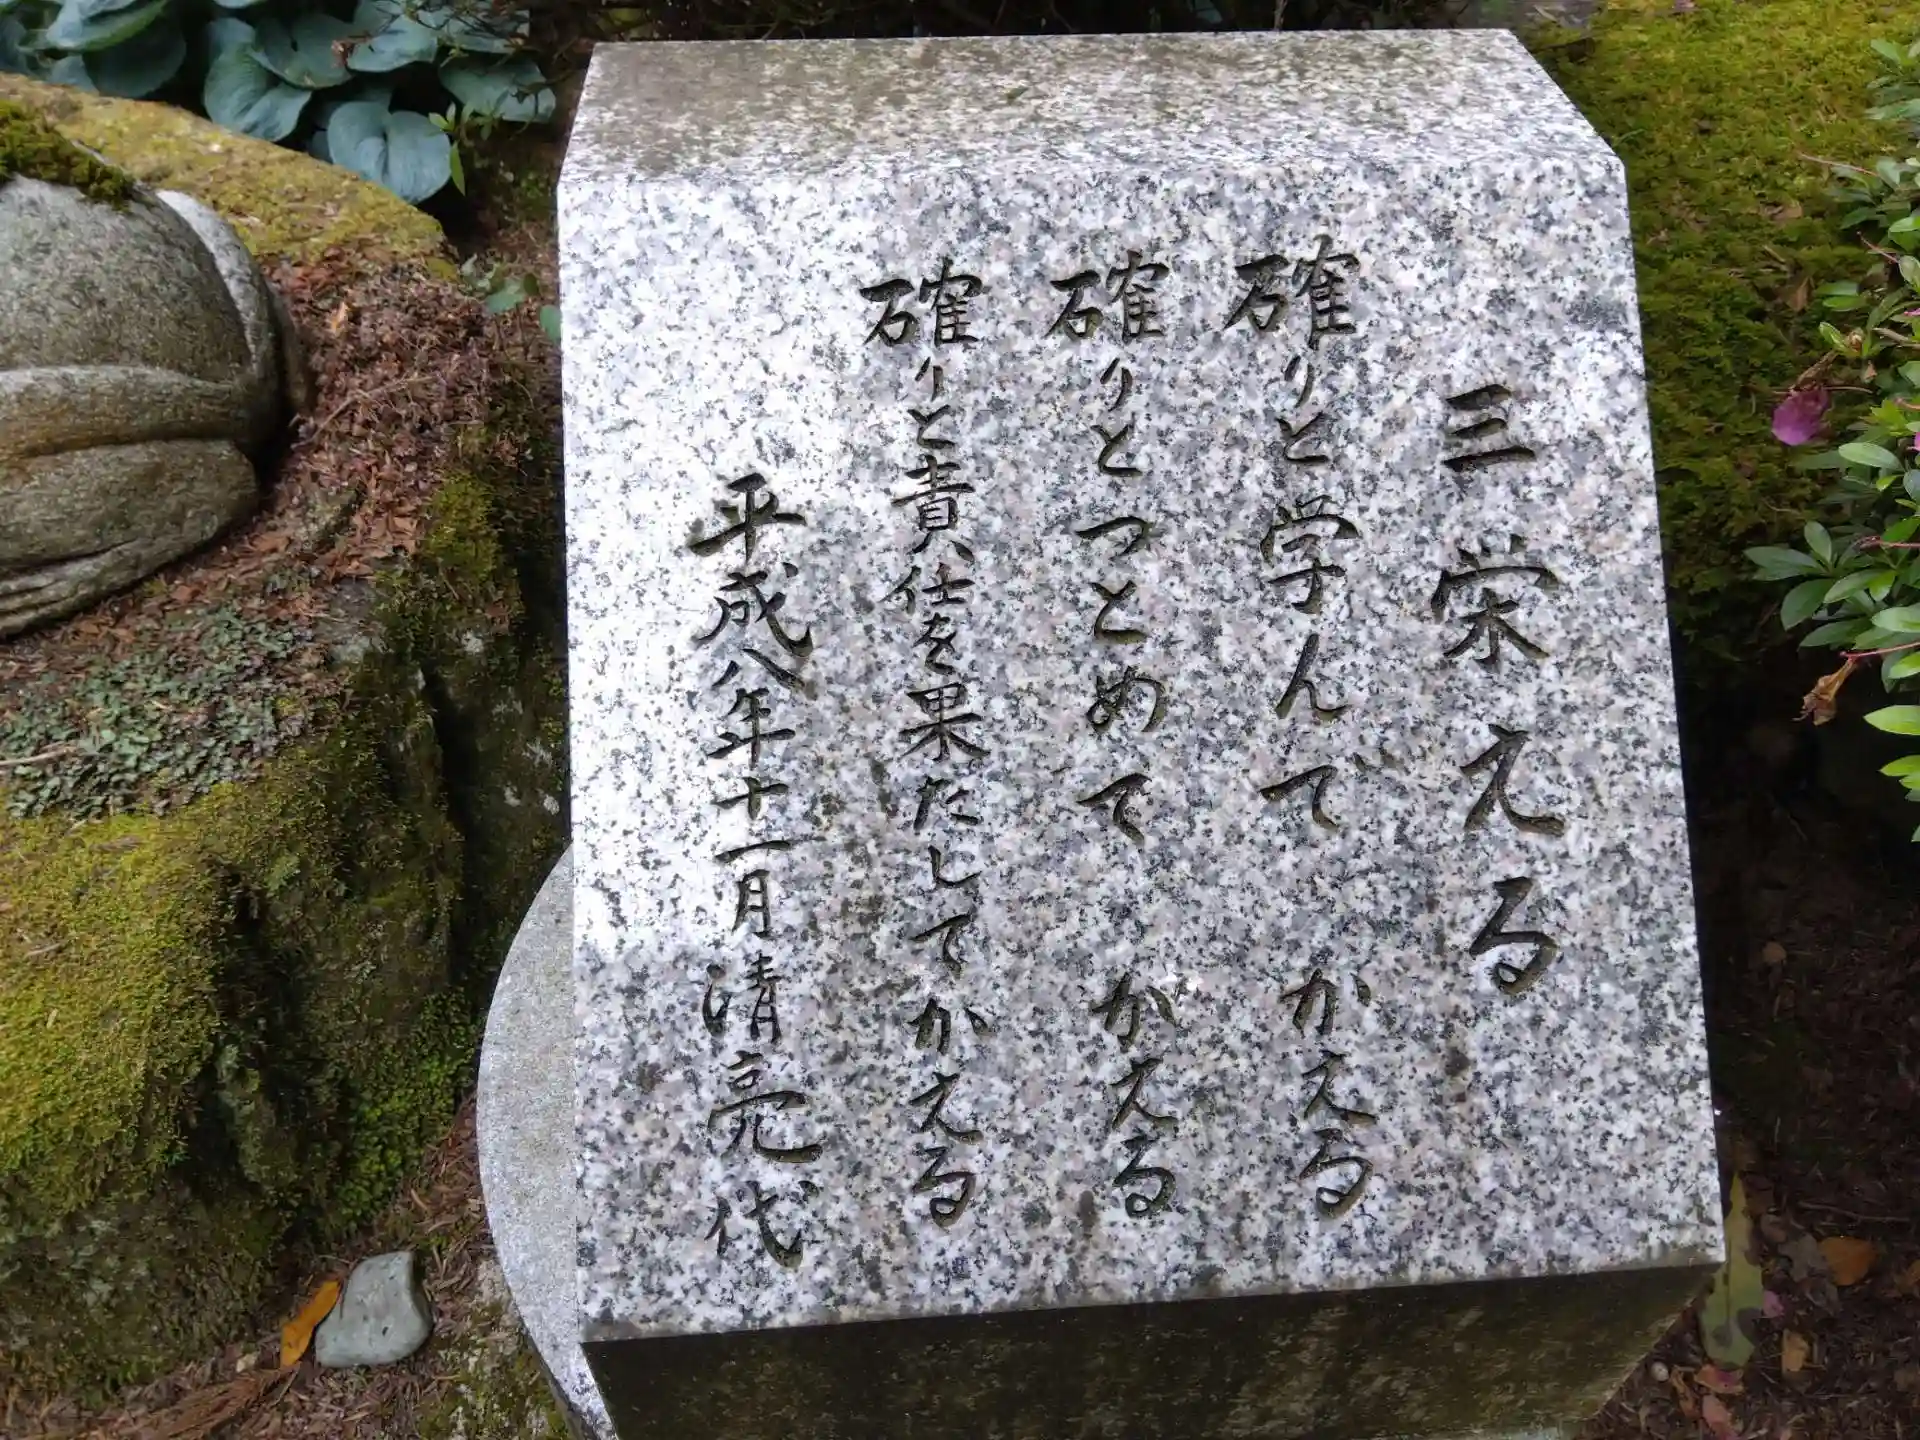 三栄える
確りと学んでかえる
確りとつとめてがえる
確りと責任を果たしてかえる
平成八年十一月清亮代